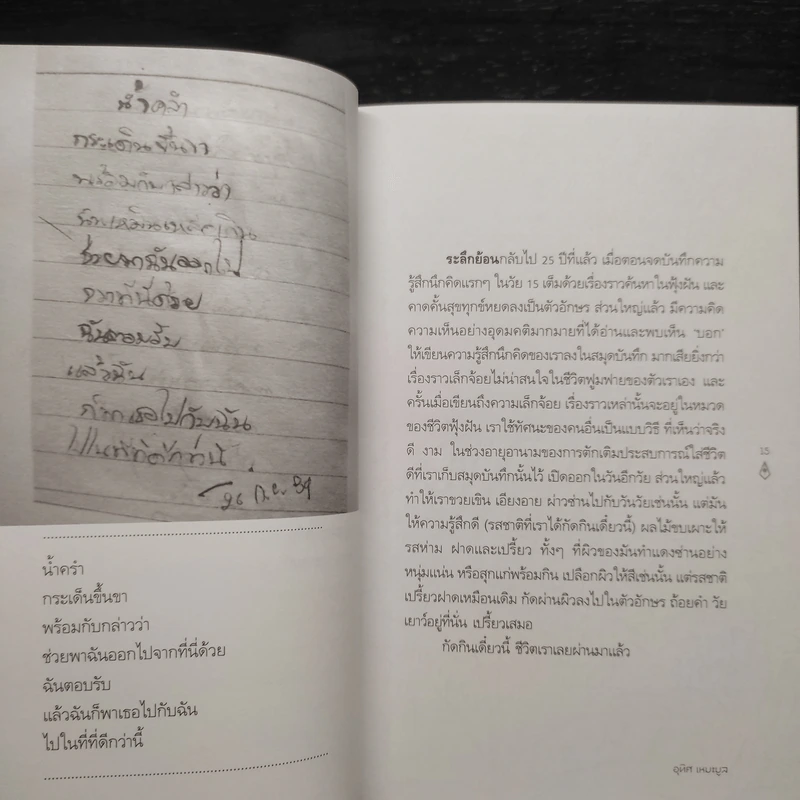 น้ำครำ
กระเด็นขึ้นขา
พร้อมกับกล่าวว่า
ช่วยพาฉันออกไป
จากที่นี่ด้วย
ฉันตอบรับ
แล้วฉัน
ก็พาเธอไปกับฉัน
ไปในที่ที่ดีกว่านี้
26 ก.ย. 39
น้ำครำ
กระเด็นขึ้นขา
พร้อมกับกล่าวว่า
ช่วยพาฉันออกไปจากที่นี่ด้วย
ฉันตอบรับ
แล้วฉันก็พาเธอไปกับฉัน
ไปในที่ที่ดีกว่านี้
ระลึกย้อนกลับไป 25 ปีที่แล้ว เมื่อตอนจดบันทึกความ
รู้สึกนึกคิดแรกๆ ในวัย 15 เต็มด้วยเรื่องราวค้นหาในฟุ้งฝัน และ
คาดคั้นสุขทุกข์หยดลงเป็นตัวอักษร ส่วนใหญ่แล้ว มีความคิด
ความเห็นอย่างอุดมคติมากมายที่ได้อ่านและพบเห็น "บอก"
ให้เขียนความรู้สึกนึกคิดของเราลงในสมุดบันทึก มากเสียยิ่งกว่า
เรื่องราวเล็กจ้อยไม่น่าสนใจในชีวิตฟูมฟายของตัวเราเอง และ
ครั้นเมื่อเขียนถึงความเล็กจ้อย เรื่องราวเหล่านั้นจะอยู่ในหมวด
ของชีวิตฟุ้งฝัน เราใช้ทัศนะของคนอื่นเป็นแบบวิธี ที่เห็นว่าจริง
ดี งาม ในช่วงอายุอานามของการตักเติมประสบการณ์ใส่ชีวิต
ดีที่เราเก็บสมุดบันทึกนั้นไว้ เปิดออกในวันอีกวัย ส่วนใหญ่แล้ว
ทำให้เราขวยเขิน เอียงอาย ผ่าวซ่านไปกับวันวัยเช่นนั้น แต่มัน
ให้ความรู้สึกดี (รสชาติที่เราได้กัดกินเดี๋ยวนี้) ผลไม้ขบเผาะให้
รสห่าม ฝาดและเปรี้ยว ทั้งๆ ที่ผิวของมันทำแดงซ่านอย่าง
หนุ่มแน่น หรือสุกแก่พร้อมกิน เปลือกผิวให้สีเช่นนั้น แต่รสชาติ
เปรี้ยวฝาดเหมือนเดิม กัดผ่านผิวลงไปในตัวอักษร ถ้อยคำ วัย
เยาว์อยู่ที่นั่น เปรี้ยวเสมอ
กัดกินเดี๋ยวนี้ ชีวิตเราเลยผ่านมาแล้ว
15
อุทิศ เหมะมูล